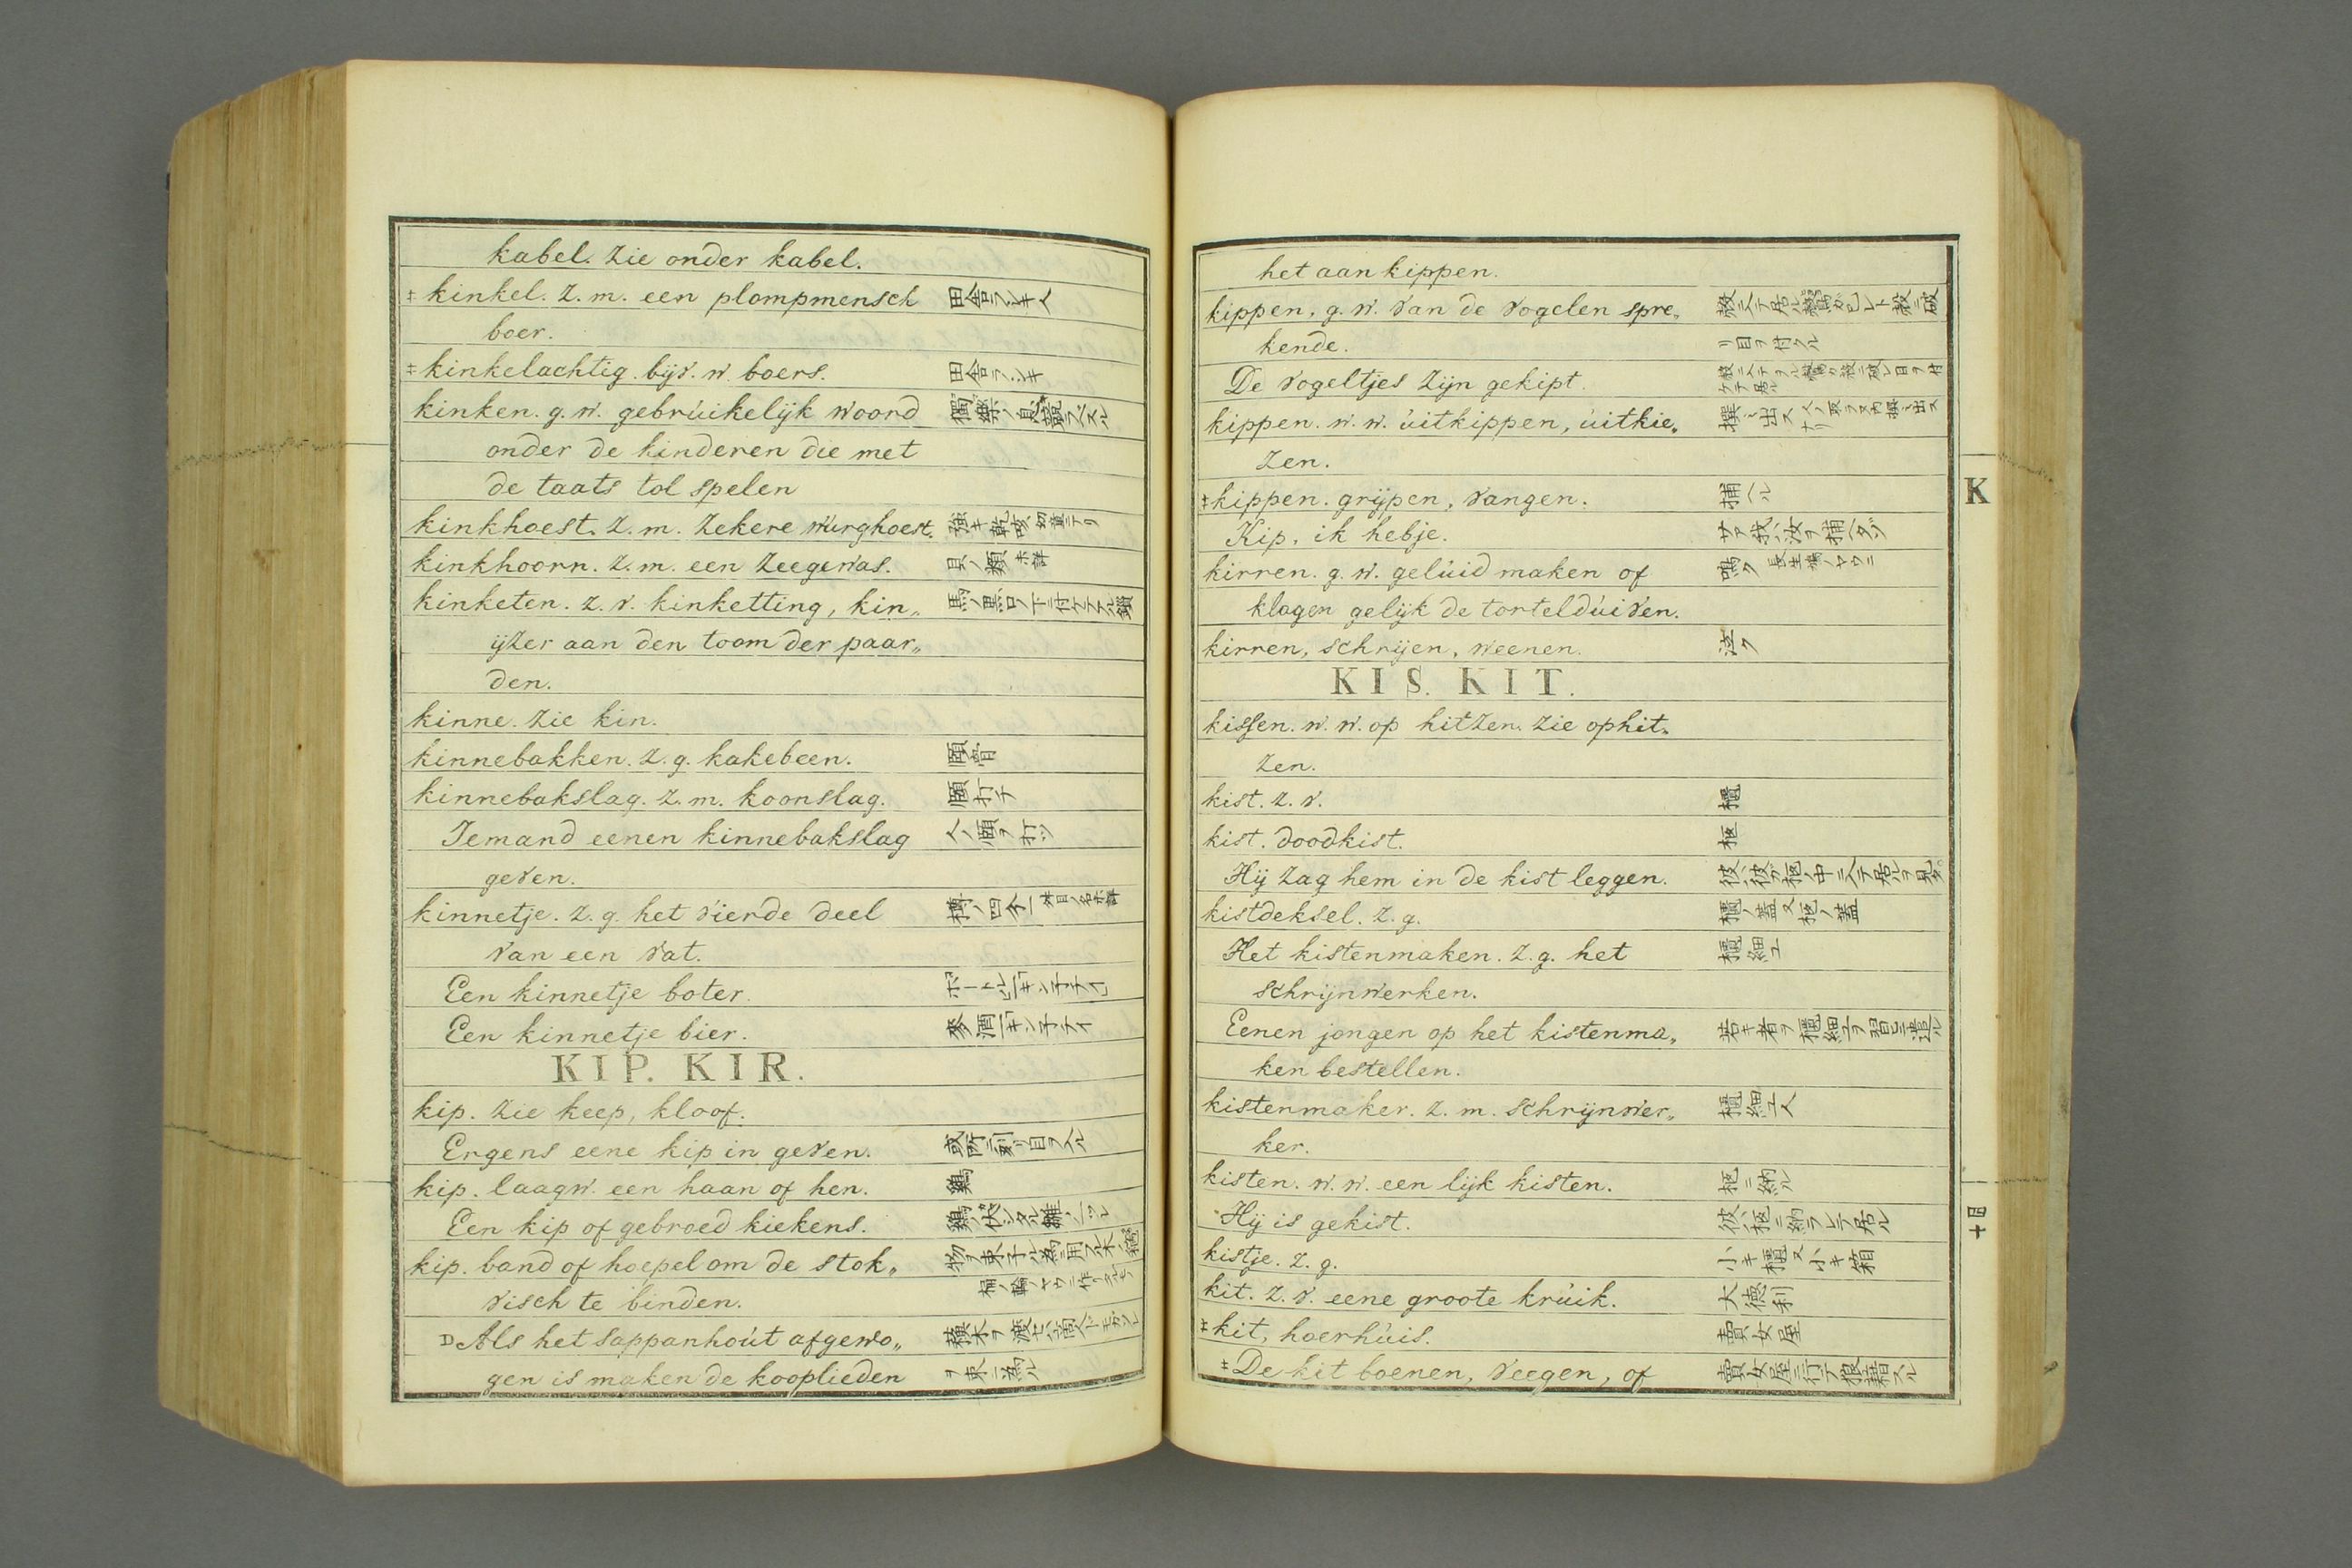 kabel. Zie onder kabel.
‡ kinkel. z. m. een plompmensch 田舎ラシキ人
boer.
‡ kinkelachtig. bijv. w. boers. 田舎ラシキ
kinken. g. w. gebrúikelijk woord 獨樂ノ息競ヘスル
onder de kinderen die met
de taats tol spelen
kinkhoest. z. m. Zekere wúrghoest. 強キ乾咳
kinkhoorn. z. m. een Zeegewas. 貝ノ類 未詳
kinketen. z. v. kinketting, kin„ 馬ノ黒口ノ下ニ付ケテアル鎖
ijzer aan den toom der paar„
den.
kinne. Zie kin.
kinnebakken. z. g. kakebeen. 頤骨
kinnebakslag. z. m. koonslag. 頤打チ
Iemand eenen kinnebakslag 人ノ頤ヲ打ツ
geven.
kinnetje. z. g. het vierde deel 樽ノ四分一
van een vat.
Een kinnetje boter.
Een kinnetje bier. 麥酒一キンネチイ
KIP. KIR.
kip. Zie keep, kloof.
Ergens eene kip in geven. 或所ニ刻リ目ヲ入ル
kip. laagw. een haan of hen. 鷄
Een kip of gebroed kiekens.
kip. band of hoepel om de stok„
visch te binden.
D Als het sappanhoút afgewo„
gen is maken de kooplieden
het aan kippen.
kippen, g. w. van de vogelen spre„
kende. リ目ヲ付クル
De vogeltjes zijn gekipt.
kippen. w. w. úitkippen, úitkie„ 撰ミ出ス
Zen.
‡ kippen. grijpen, vangen. 捕ヘル
Kip, ik hebje. サア我汝ヲ捕ヘタゾ
kirren. g. w. gelúid maken of 鳴ク
klagen gelijk de tortelduiven.
kirren, schrijen, weenen. 泣ク
KIS. KIT.
kissen. w. w. op hitzen. zie ophit„
zen.
kist. z. v. 櫃
kist. doodkist. 柩
Hij zag hem in de kist leggen. 彼彼ガ柩ノ中ニ入テ居ルヲ見タ
kistdeksel. z. g. 櫃ノ蓋又柩ノ蓋
Het kistenmaken. z. g. het 櫃細工
schrijnwerken.
Eenen jongen op het kistenma„ 若キ者ヲ櫃細工ヲ習ヒニ遣ル
ken bestellen.
kistenmaker. z. m. schrijnwer„ 櫃細工人
ker.
kisten. w. w. een lijk kisten. 柩ニ納ル
Hij is gekist. 彼柩ニ納ラレテ居ル
kistje. z. g. 小キ櫃又小キ箱
kit. z. v. eene groote krúik. 大徳利
‡ kit, hoerhúis. 賣女屋
‡ De kit boenen, veegen, of 賣女屋ニ行テ狼藉スル
K
十四